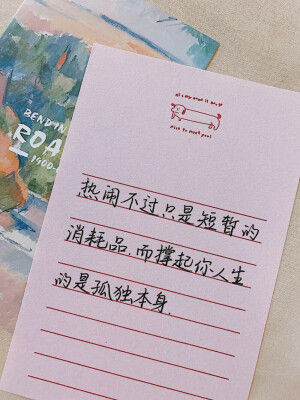 BENDIN
ROA
1900-
nice to meet you!
热闹不过只是短暂的
消耗品,而撑起你人生
的是孤独本身.